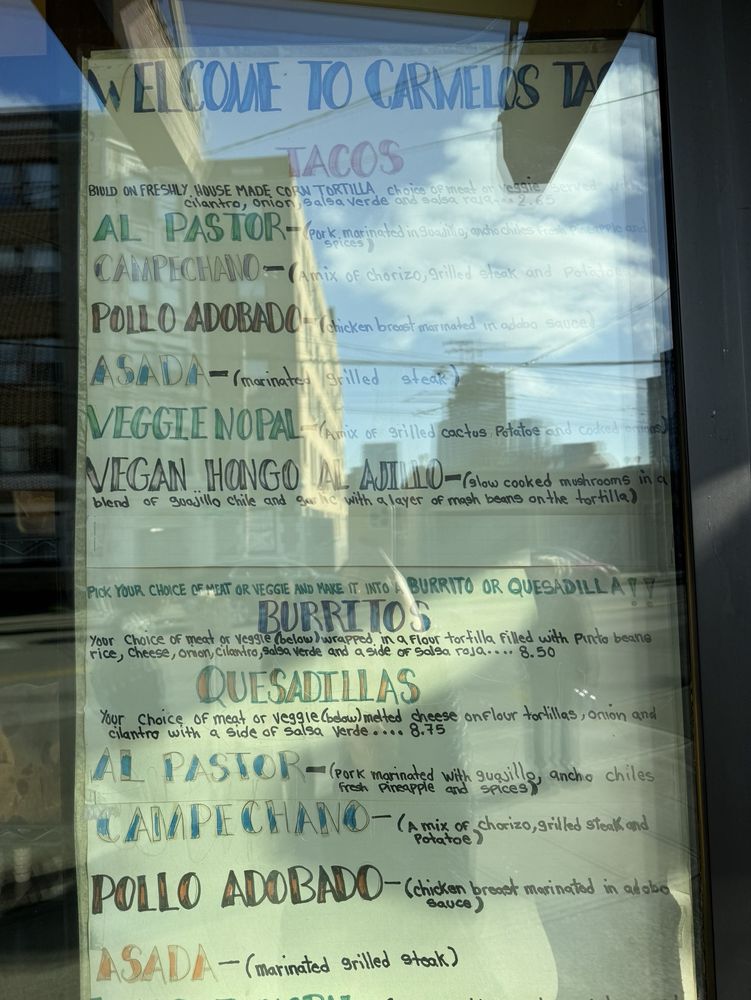 WELCOME TO CARMELOS TAC
TACOS
BIULD ON FRESHLY, HOUSE MADE CORN TORTILLA, choice of meat or veggie served with
cilantro, onion, salsa verde and salsa roja---- 2.65
AL PASTOR-(pork marinated in guajillo, ancho chiles fresh Pineapple and
spices)
CAMPECHANO-(A mix of chorizo, grilled steak and Potatoe
POLLO ADOBADO-(chicken breast marinated in adobo sauce)
ASADA-(marinated grilled steak)
VEGGIE NOPAL-(A mix of grilled cactus, Potatoe and cooked onions)
VEGAN HONGO AL AJILLO-(slow cooked mushrooms in a
blend of guajillo chile and garlic with a layer of mash beans on the tortilla)
PICK YOUR CHOICE OF MEAT OR VEGGIE AND MAKE IT INTO A BURRITO OR QUESADILLA!!
BURRITOS
Your Choice of meat or veggie (below) wrapped in a flour tortilla filled with Pinto beans
rice, cheese, onion, cilantro, salsa verde and a side of salsa roja.... 8.50
QUESADILLAS
Your Choice of meat or veggie (below) melted cheese on flour tortillas, onion and
cilantro with a side of salsa verde.... 8.75
AL PASTOR-(Pork marinated with guajillo, ancho chiles
fresh Pineapple and spices)
CAMPECHANO-(A mix of chorizo, grilled steak and
Potatoe)
POLLO ADOBADO-(chicken breast marinated in adobo
sauce)
ASADA-(marinated grilled steak)